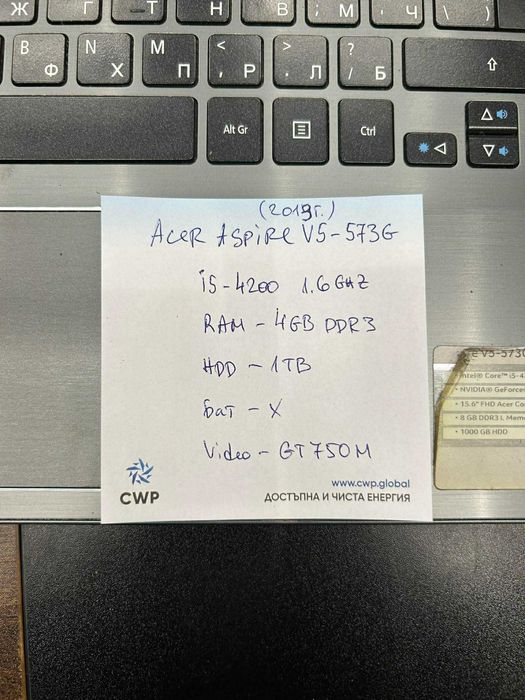 Ж Г Т Н В : М Ч \ )
В Ф N Х М П < , Р > . Л ? / Б
Alt Gr Ctrl
(2013г.)
Acer Aspire V5-573G
i5-4200 1.6GHZ
RAM - 4GB DDR3
HDD - 1TB
Бат - X
Video - GT750M
CWP
www.cwp.global
ДОСТЪПНА И ЧИСТА ЕНЕРГИЯ
V5-573G
Intel® Core™ i5-4
• NVIDIA® GeForce
• 15.6" FHD Acer Co
• 8 GB DDR3 L Mem
• 1000 GB HDD